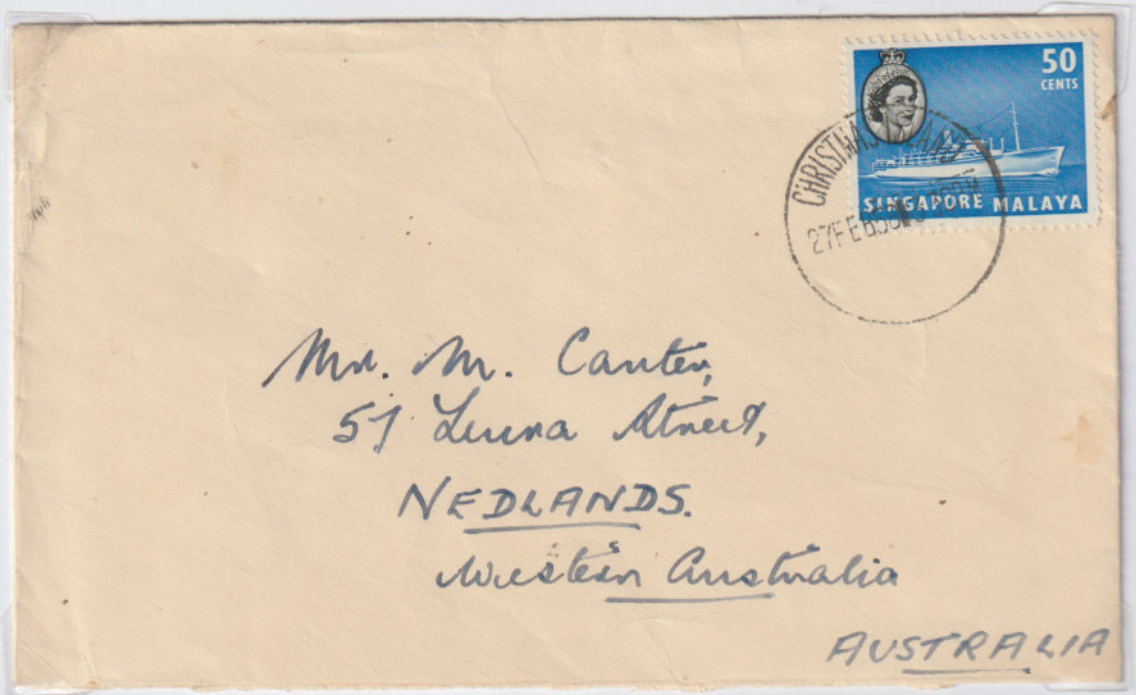 50
CENTS
SINGAPORE MALAYA
CHRISTMAS ISLAND
27FEB58
Mr. M. Canter,
57 Leura Street,
NEDLANDS.
Western Australia
AUSTRALIA